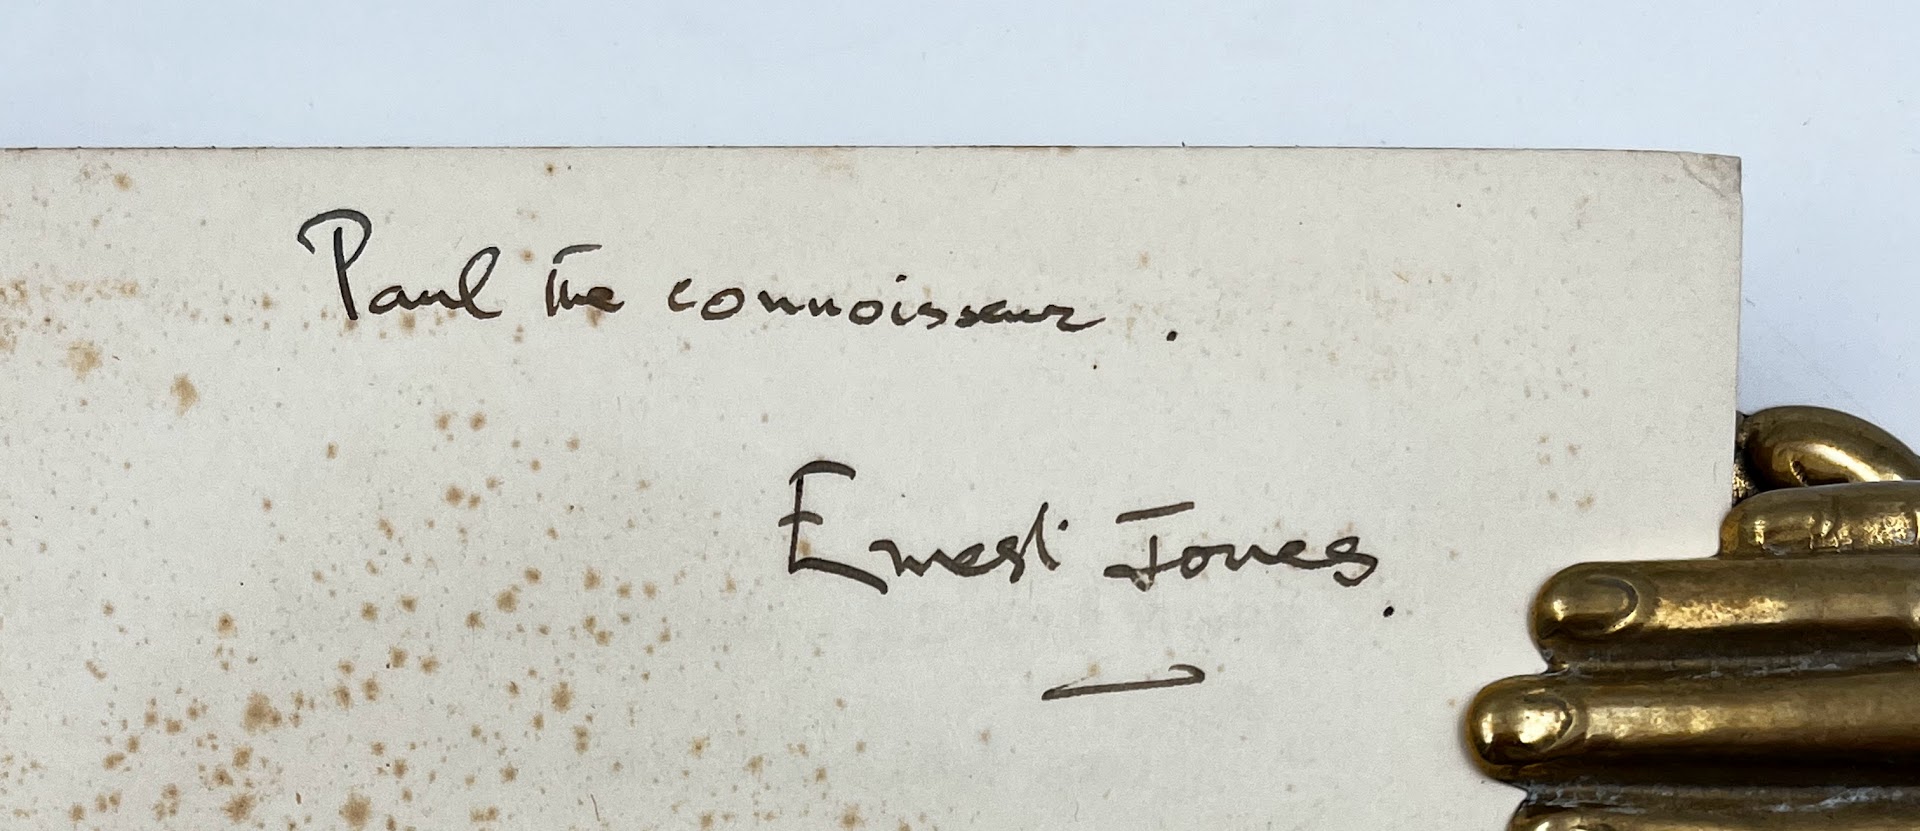 Paul the connoisseur .
Ernest Jones.